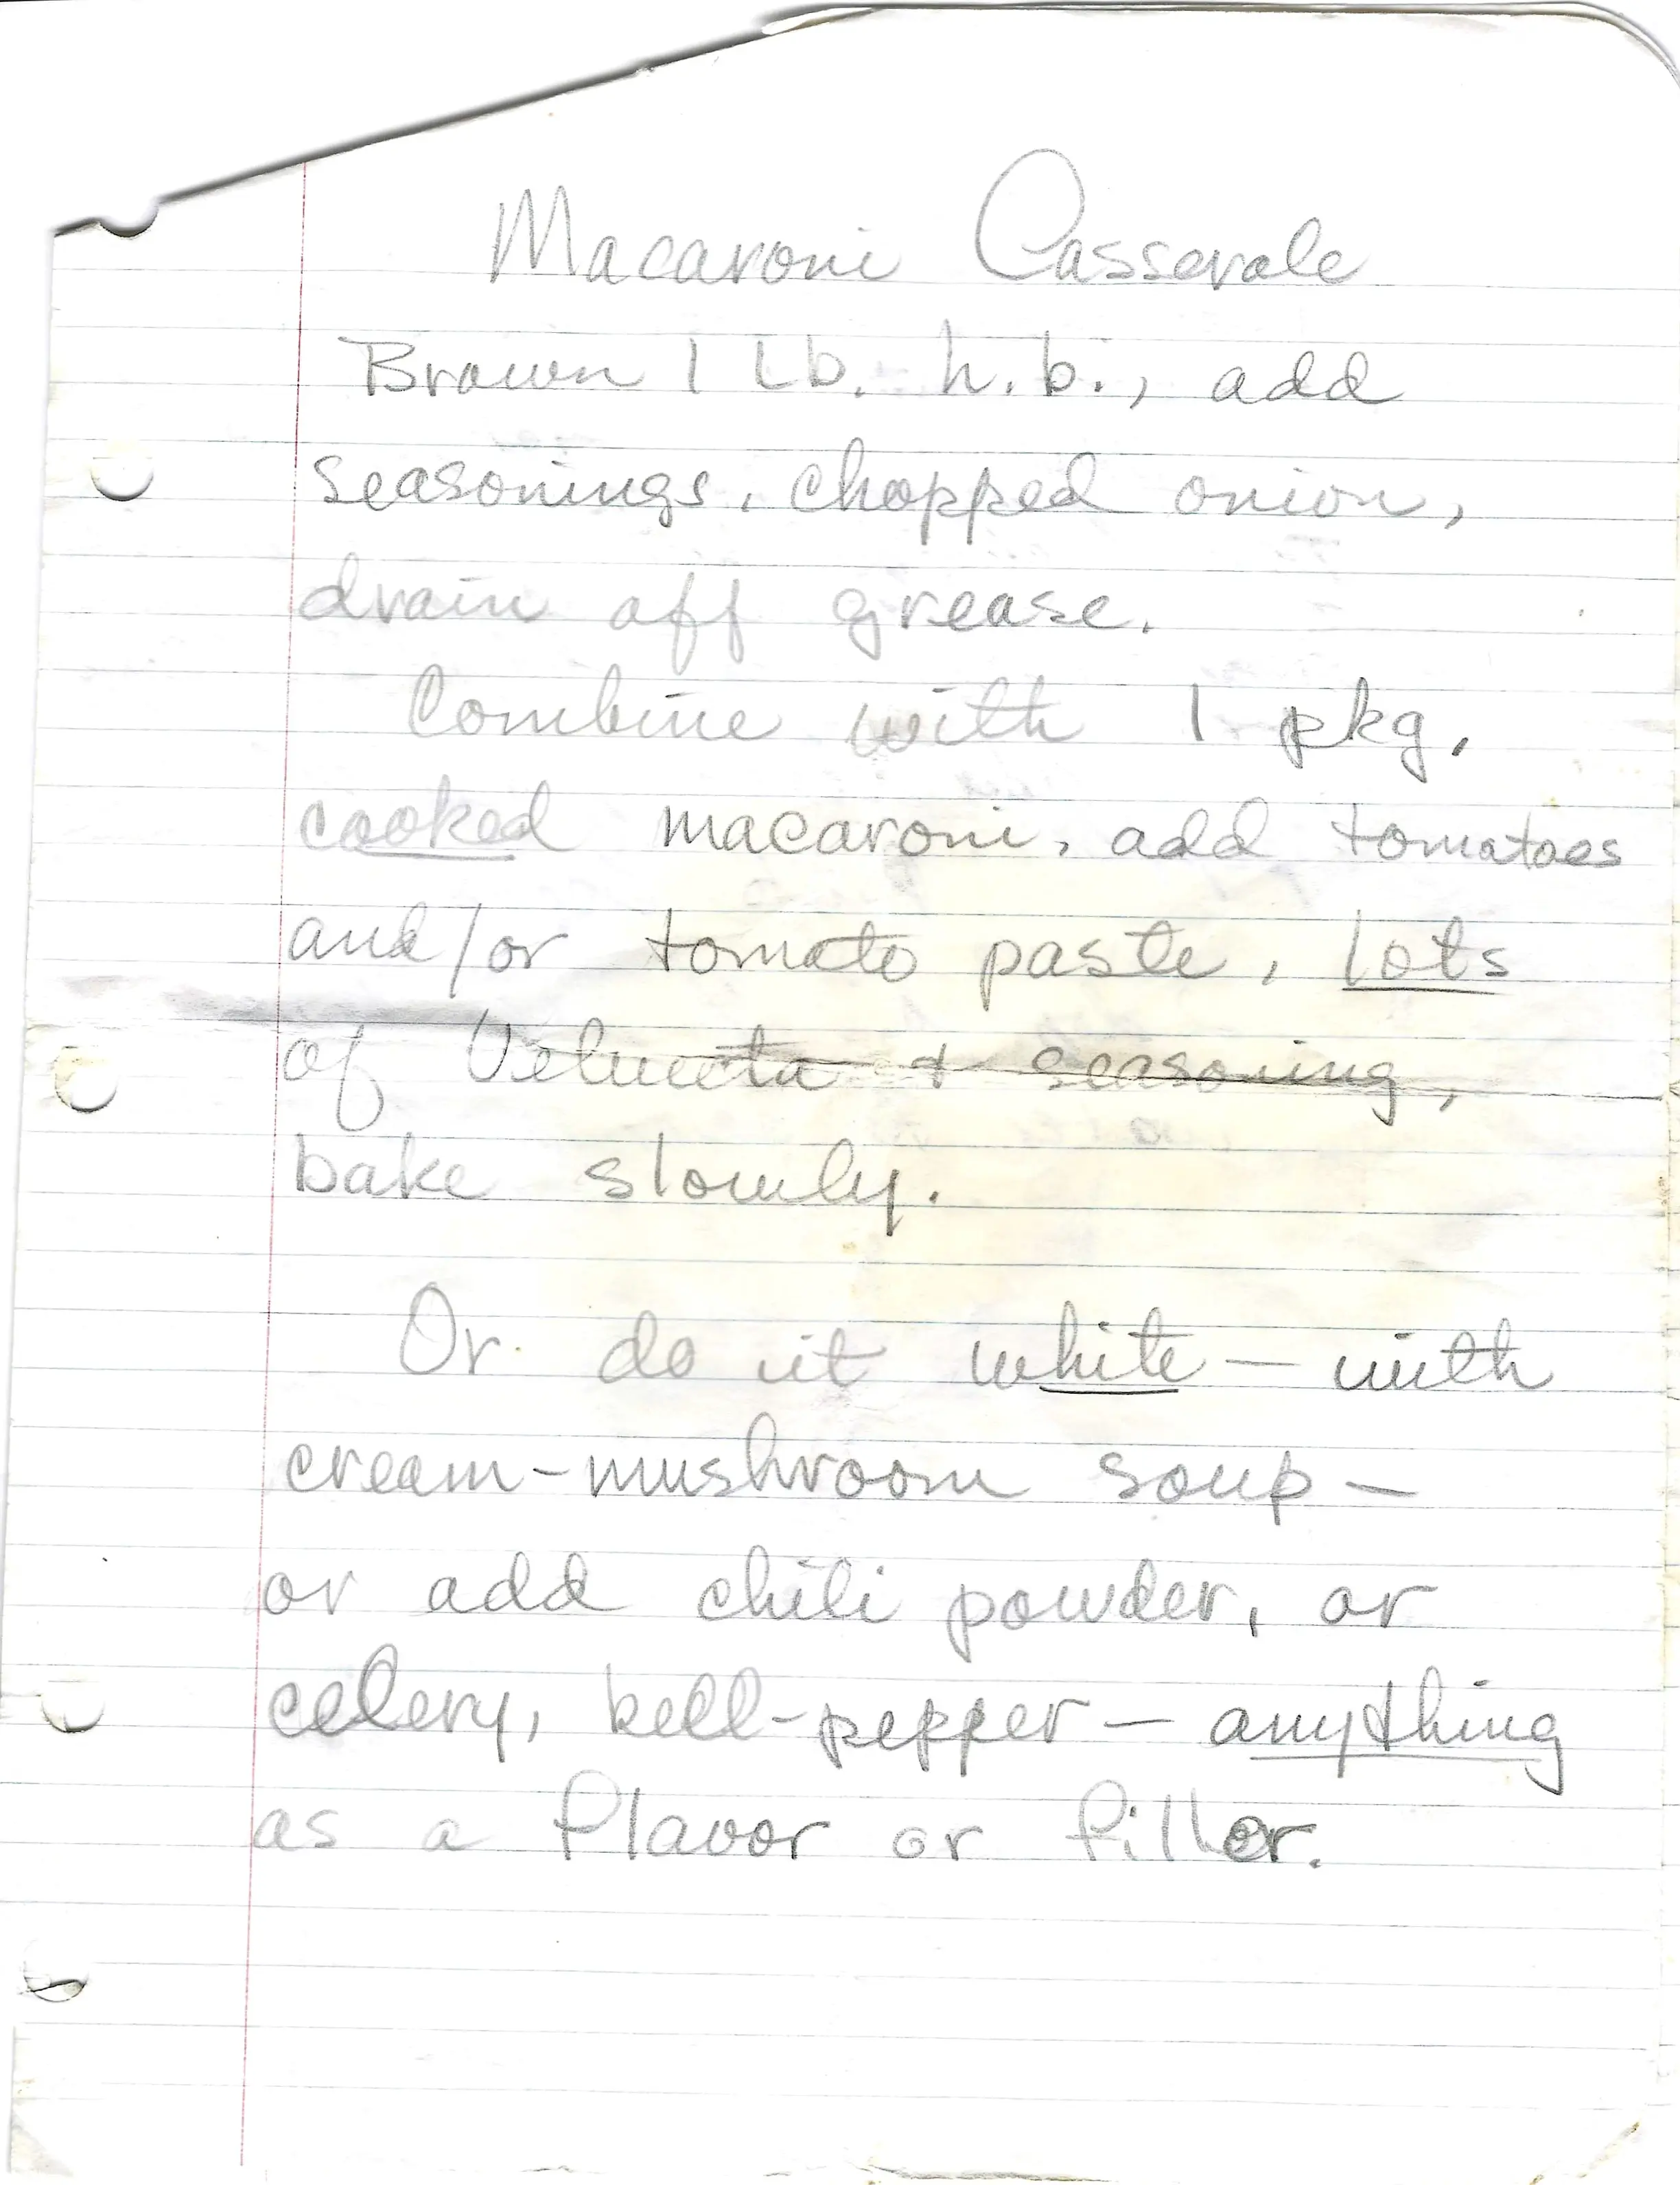 Macaroni Casserole
Brown 1 Lb. h.b., add
seasonings, chopped onion,
drain off grease.
Combine with 1 pkg.
cooked macaroni, add tomatoes
and/or tomato paste, lots
of Velveeta + seasoning,
bake slowly.
Or do it white – with
cream-mushroom soup –
or add chili powder, or
celery, bell-pepper – anything
as a flavor or filler.